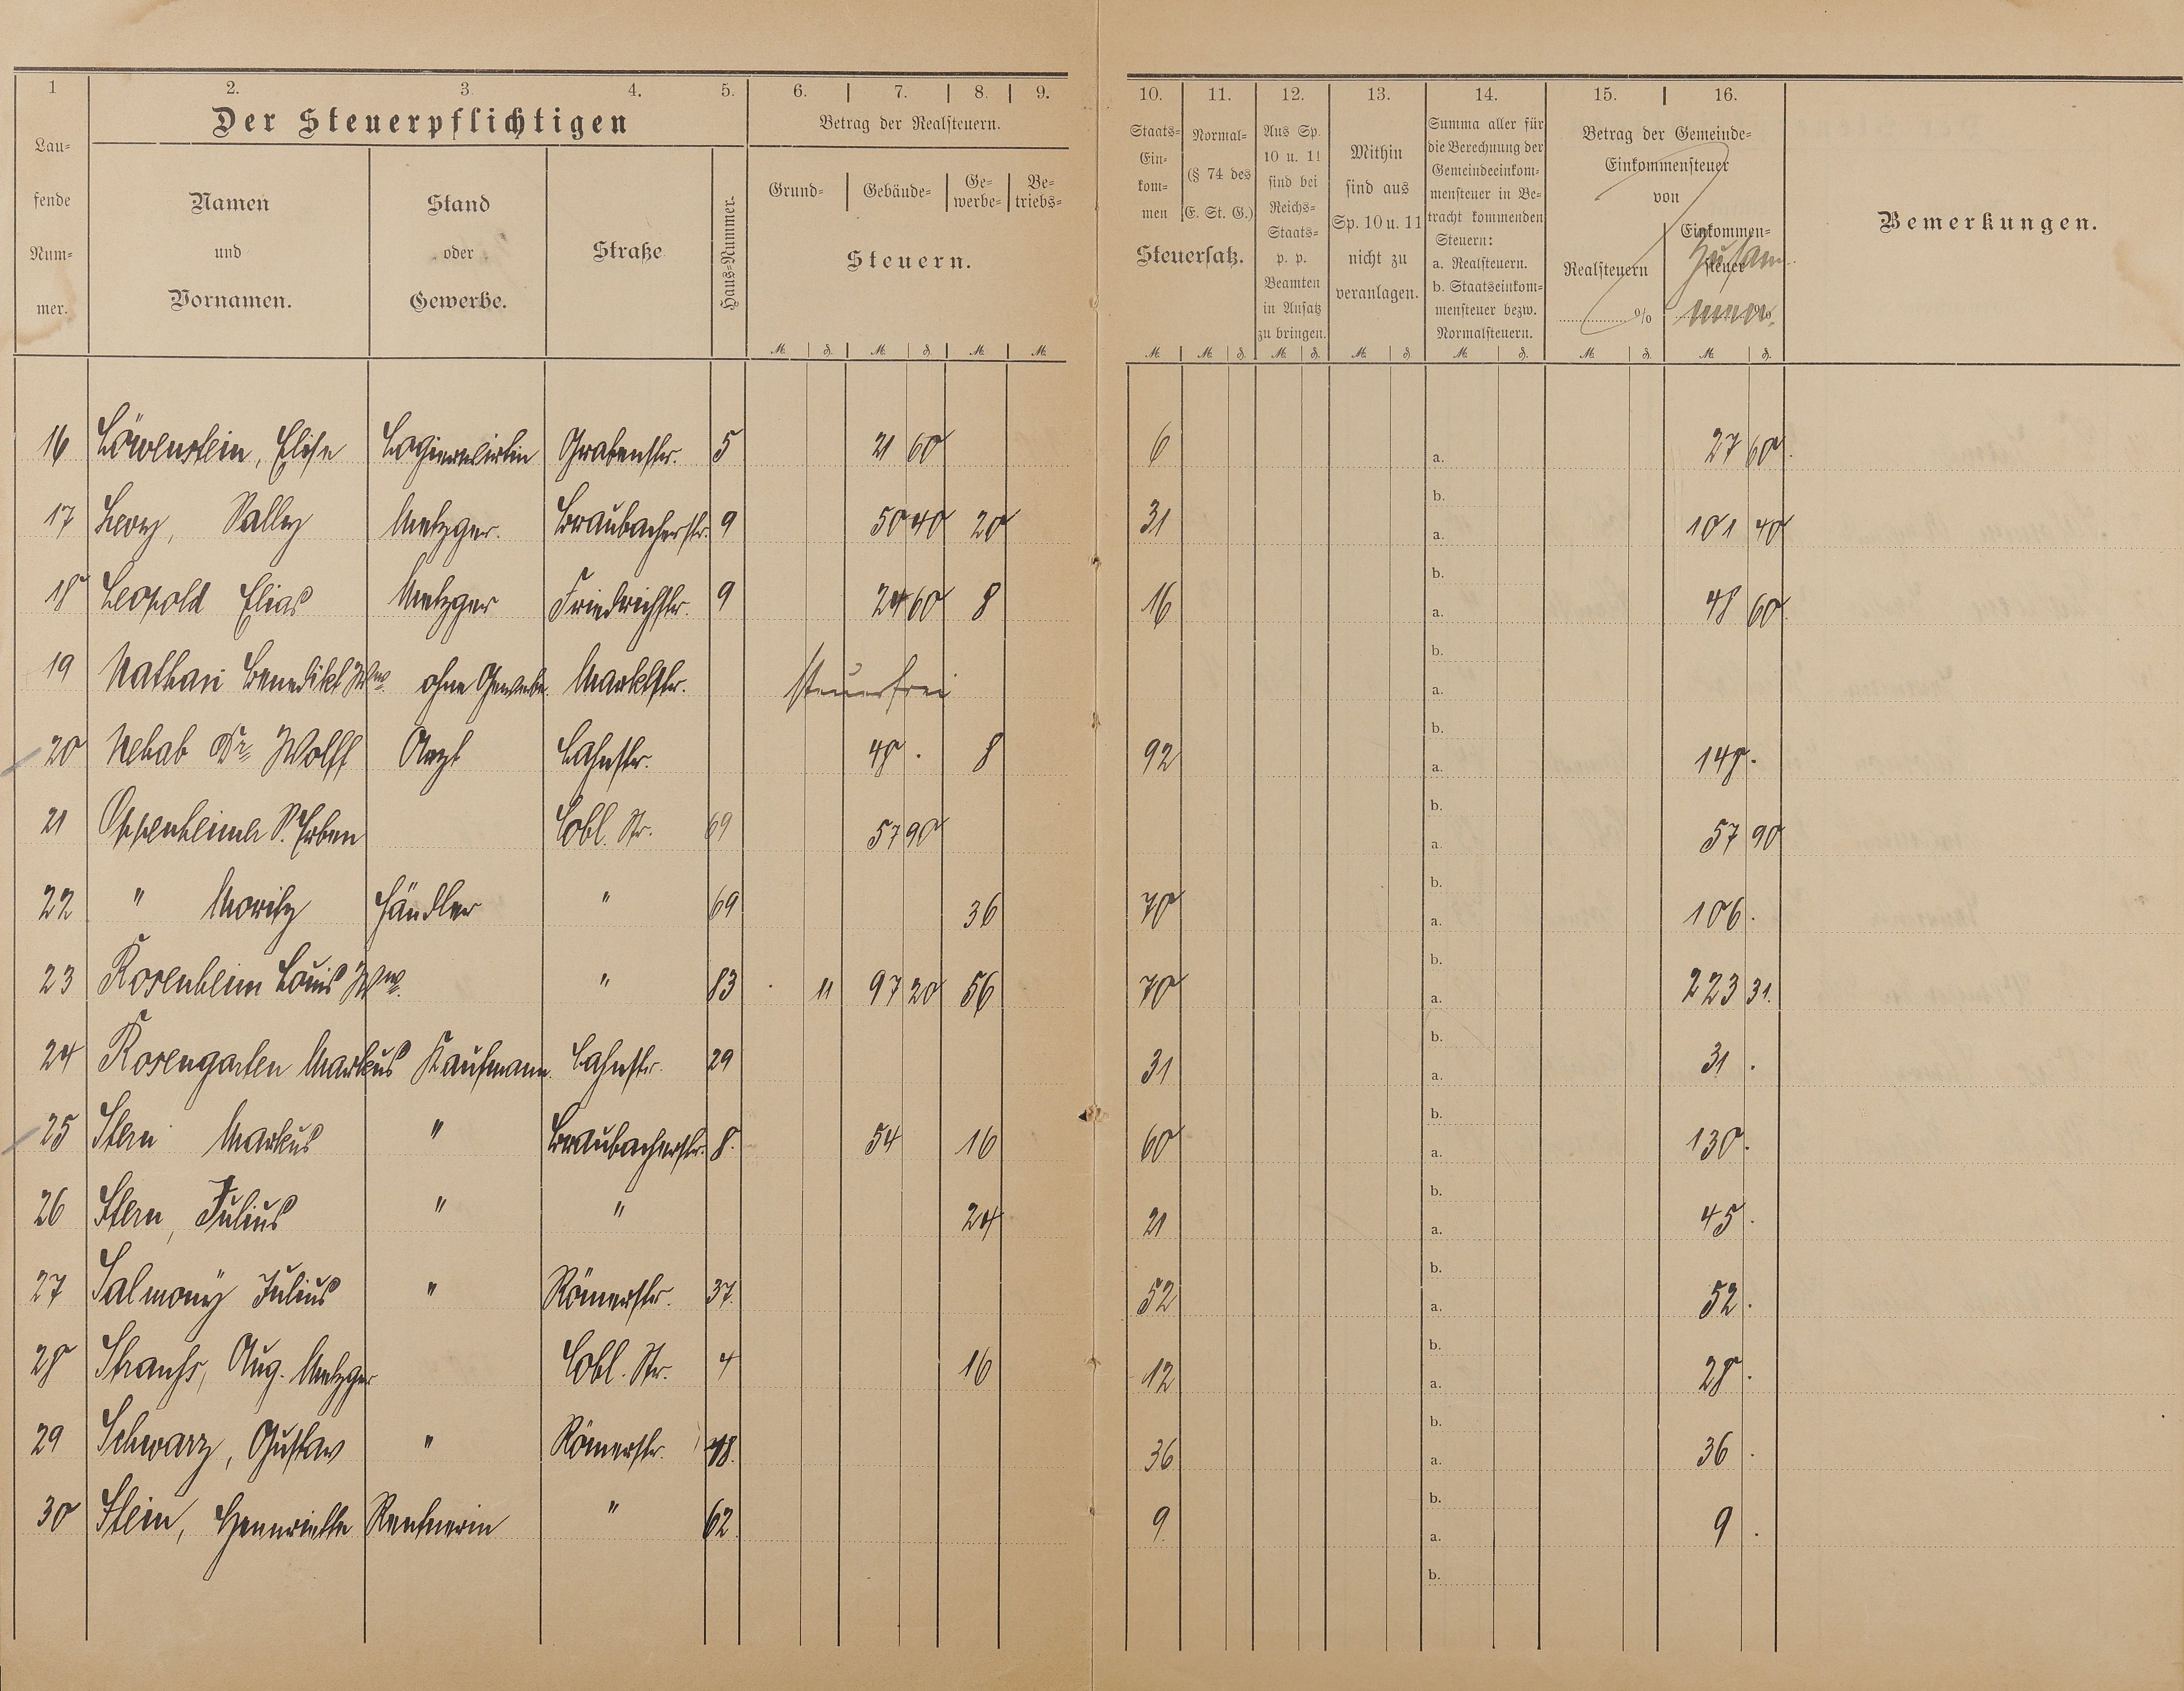 1 2. 3. 4. 5. 6. 7. 8. 9. 10. 11. 12. 13. 14. 15. 16.
Lau-
fende
Num-
mer.
Der Steuerpflichtigen
Namen
und
Vornamen.
Stand
oder
Gewerbe.
Straße
Haus-Nummer.
Betrag der Realsteuern.
Grund- Gebäude- Ge-
werbe- Be-
triebs-
Steuern.
M. ₰. M. ₰. M. M.
Staats-
Ein-
kom-
men
Normal-
(§ 74 des
E. St. G.)
Steuersatz.
Aus Sp.
10 u. 11
sind bei
Reichs-
Staats-
p. p.
Beamten
in Ansatz
zu bringen.
Mithin
sind aus
Sp. 10 u. 11
nicht zu
veranlagen.
Summa aller für
die Berechnung der
Gemeindeeinkom-
mensteuer in Be-
tracht kommenden
Steuern:
a. Realsteuern.
b. Staatseinkom-
mensteuer bezw.
Normalsteuern.
Betrag der Gemeinde-
Einkommensteuer
von
Realsteuern
%
Einkommen-
steuer
%
Zusam-
men.
Bemerkungen.
M. M. ₰. M. ₰. M. ₰. M. ₰. M. ₰. M. ₰.
16 Löwenstein, Elise Logierwirtin Grabenstr. 5 21 60 6 a. 27 60.
b.
17 Levy, Sally Metzger. Braubacherstr. 9 50 40 20 31 a. 101 40
b.
18 Leopold Elias Metzger Friedrichstr. 9 24 60 8 16 a. 48 60
b.
19 Nathan Benedikt Wwe. ohne Gewerbe. Marktstr. steuerfrei a.
b.
20 Nehab Dr. Wolff Arzt Lahnstr. 48 . 8 92 a. 148.
b.
21 Oppenheimer S. Erben Cobl. Str. 69 57 90 a. 57 90
b.
22 " Moritz Händler " 69 36 70 a. 106.
b.
23 Rosenheim Louis Wwe. " 83 . 11 97 20 56 70 a. 223 31.
b.
24 Rosengarten Markus Kaufmann. Lahnstr. 29 31 a. 31 .
b.
25 Stern Markus " Braubacherstr. 8. 54 16 60 a. 130.
b.
26 Stern, Julius " " 24 21 a. 45.
b.
27 Salmony Julius " Römerstr. 37. 52 a. 52.
b.
28 Strauss, Aug. Metzger Cobl. Str. 4 16 12 a. 28.
b.
29 Schwarz, Gustav " Römerstr. 36 a. 36 .
b.
30 Stein, Henriette Rentnerin " 62 9. a. 9 .
b.